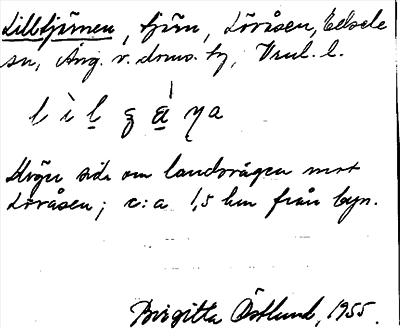 Lilltjärnen, tjärn, Lövåsen, Edsele
sn, Ång. v. doms. tg, Vnl. l.
Högra sida om landsvägen mot
Lövåsen; c:a 1,5 km från byn.
Birgitta Östlund, 1955.